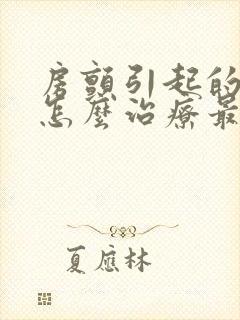 房顫引起的
怎麼治療最
夏應林